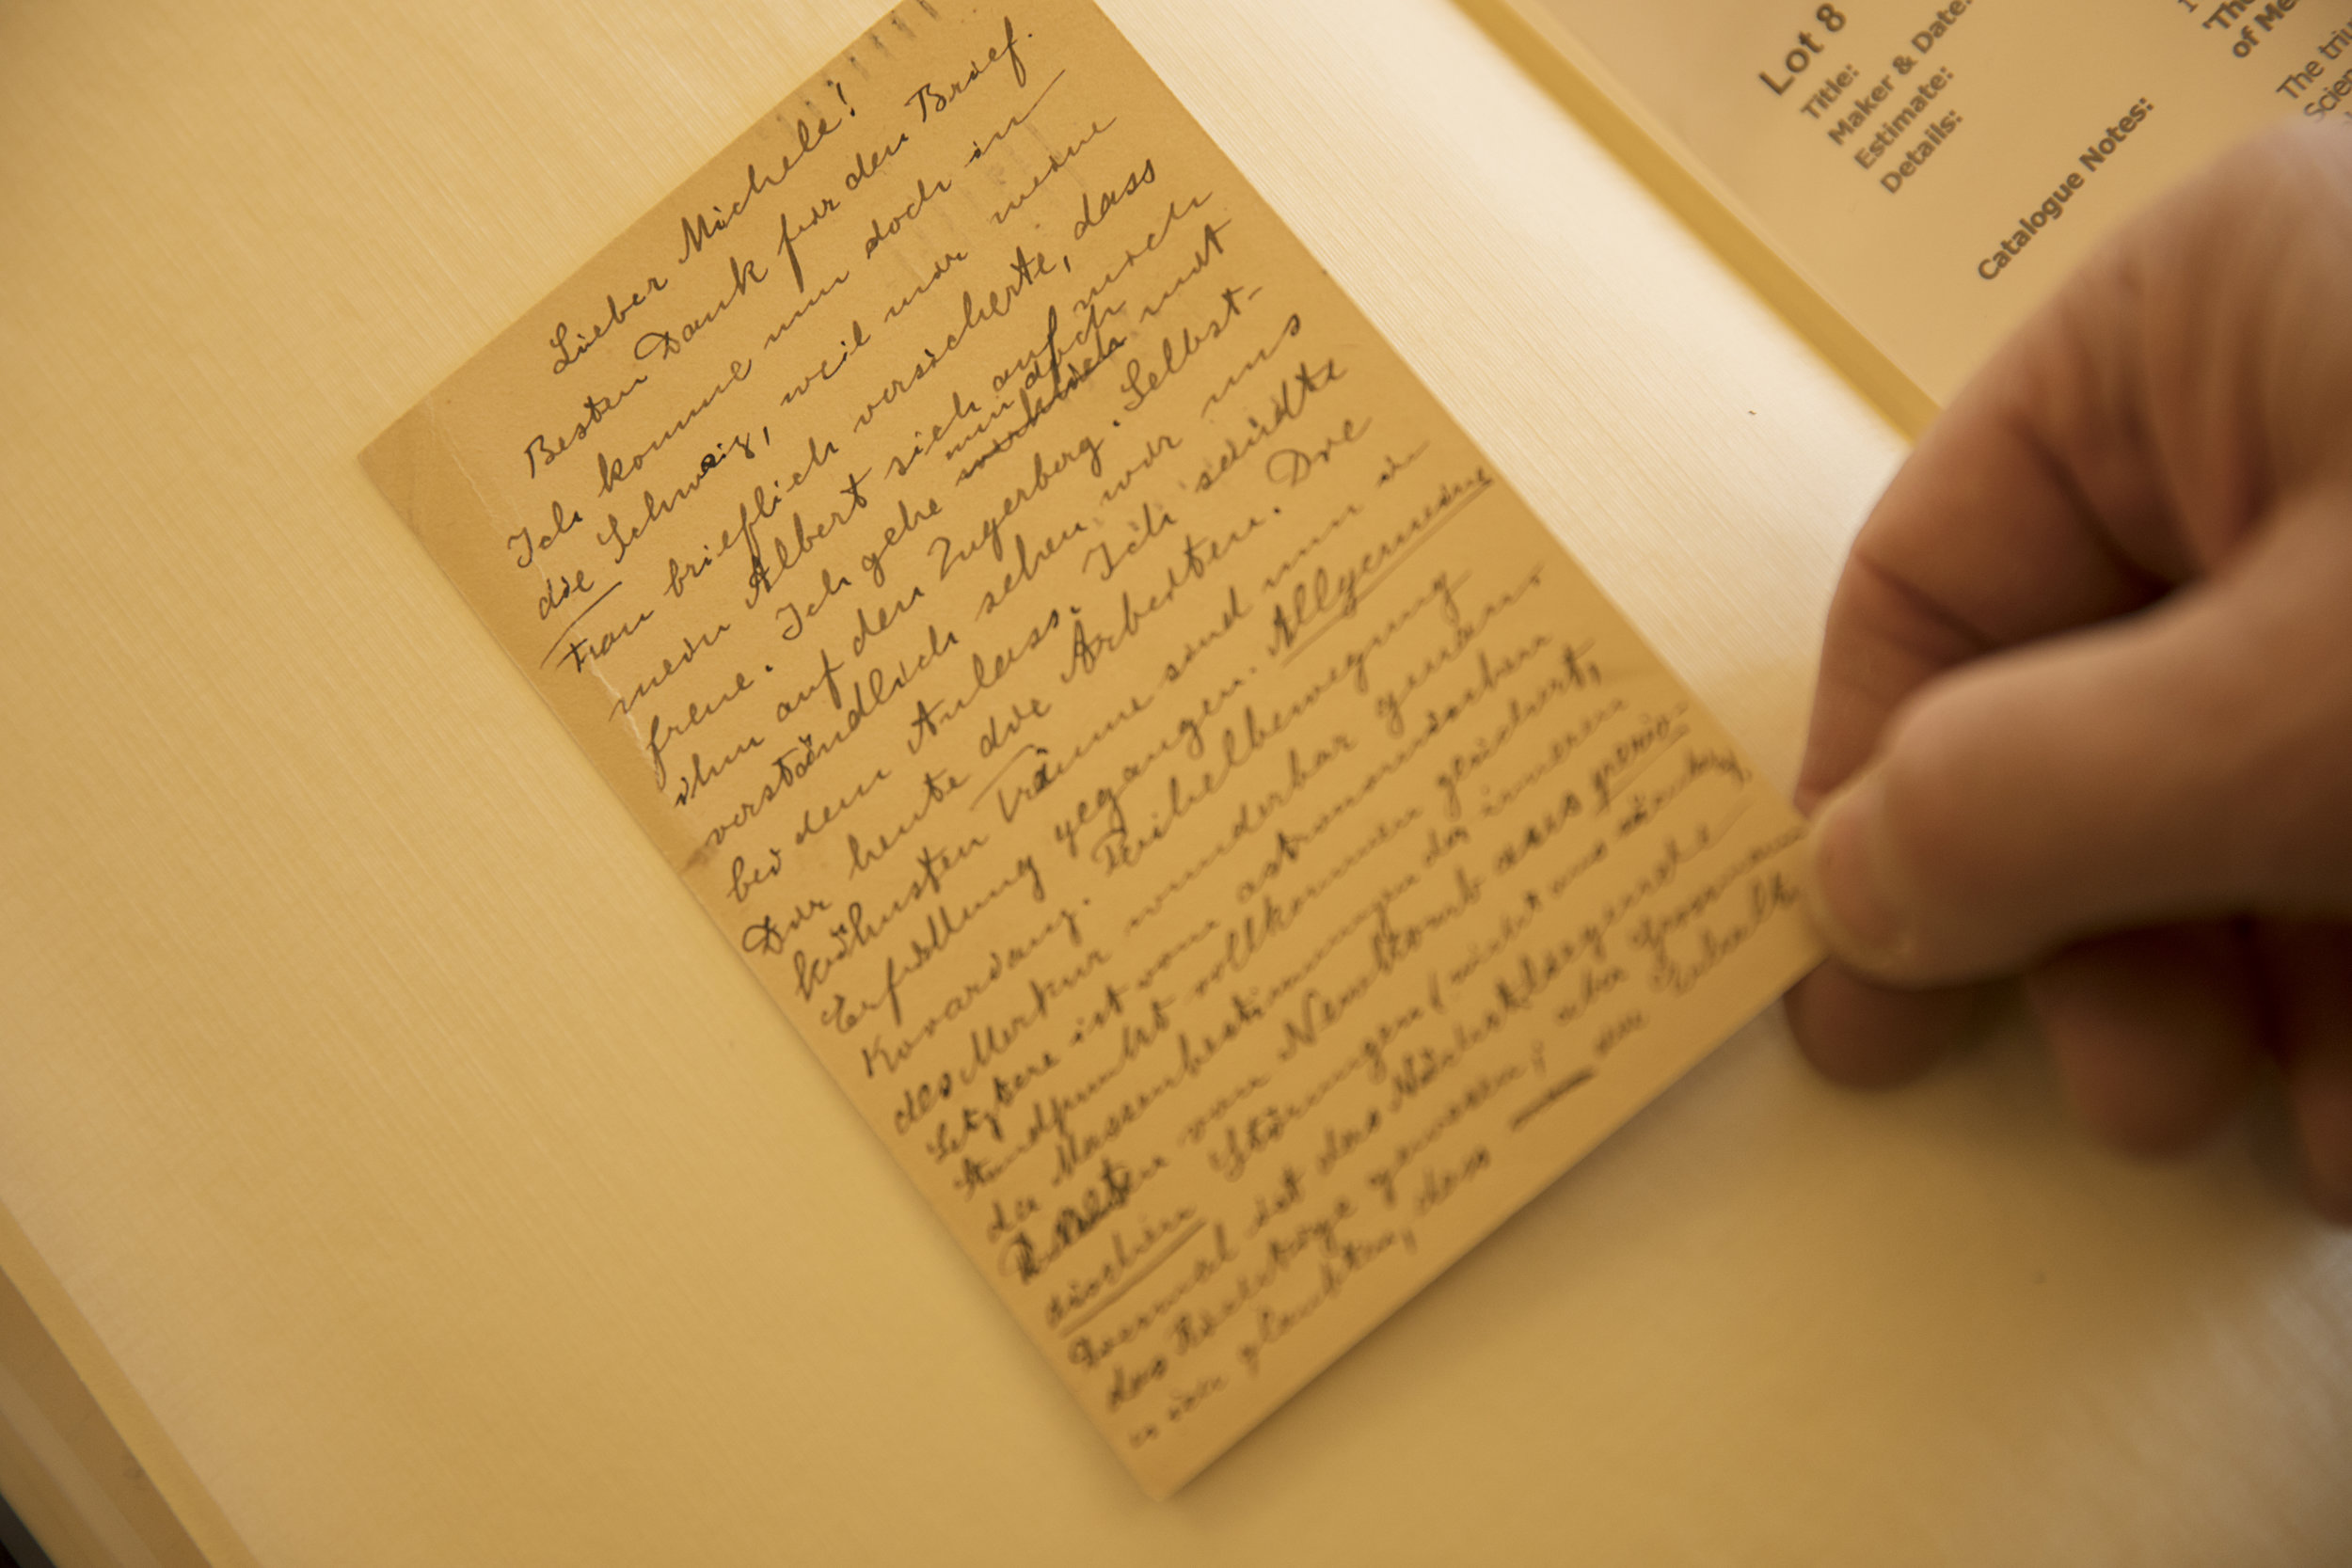 Lieber Michele!
Besten Dank für den Brief.
Ich komme nun doch in
die Schweiz, weil mir meine
Frau brieflich versicherte, dass
mein Albert sich auf mich
freue. Ich gehe nun doch mit
ihm auf den Zugerberg. Selbst-
verständlich sehen wir uns
bei dem Anlass. Ich sendte
Dir heute die Arbeiten. Die
kühnsten Träume sind nun in
Erfüllung gegangen. Allgemeine
Kovarianz. Perihelbewegung
des Merkur wunderbar genau.
Letztere ist vom astronomischen
Standpunkt vollkommen gesichert,
die Massenbestimmungen der inneren
Planeten von Newkomb aus perio-
dischen Störungen (nicht aus säkular).
Diesmal ist das Nächstliegende
das Richtige gewesen;
glaubten, dass
Lot 8
Title:
Maker & Date:
Estimate:
Details:
Catalogue Notes:
of Me
The triu
Scien